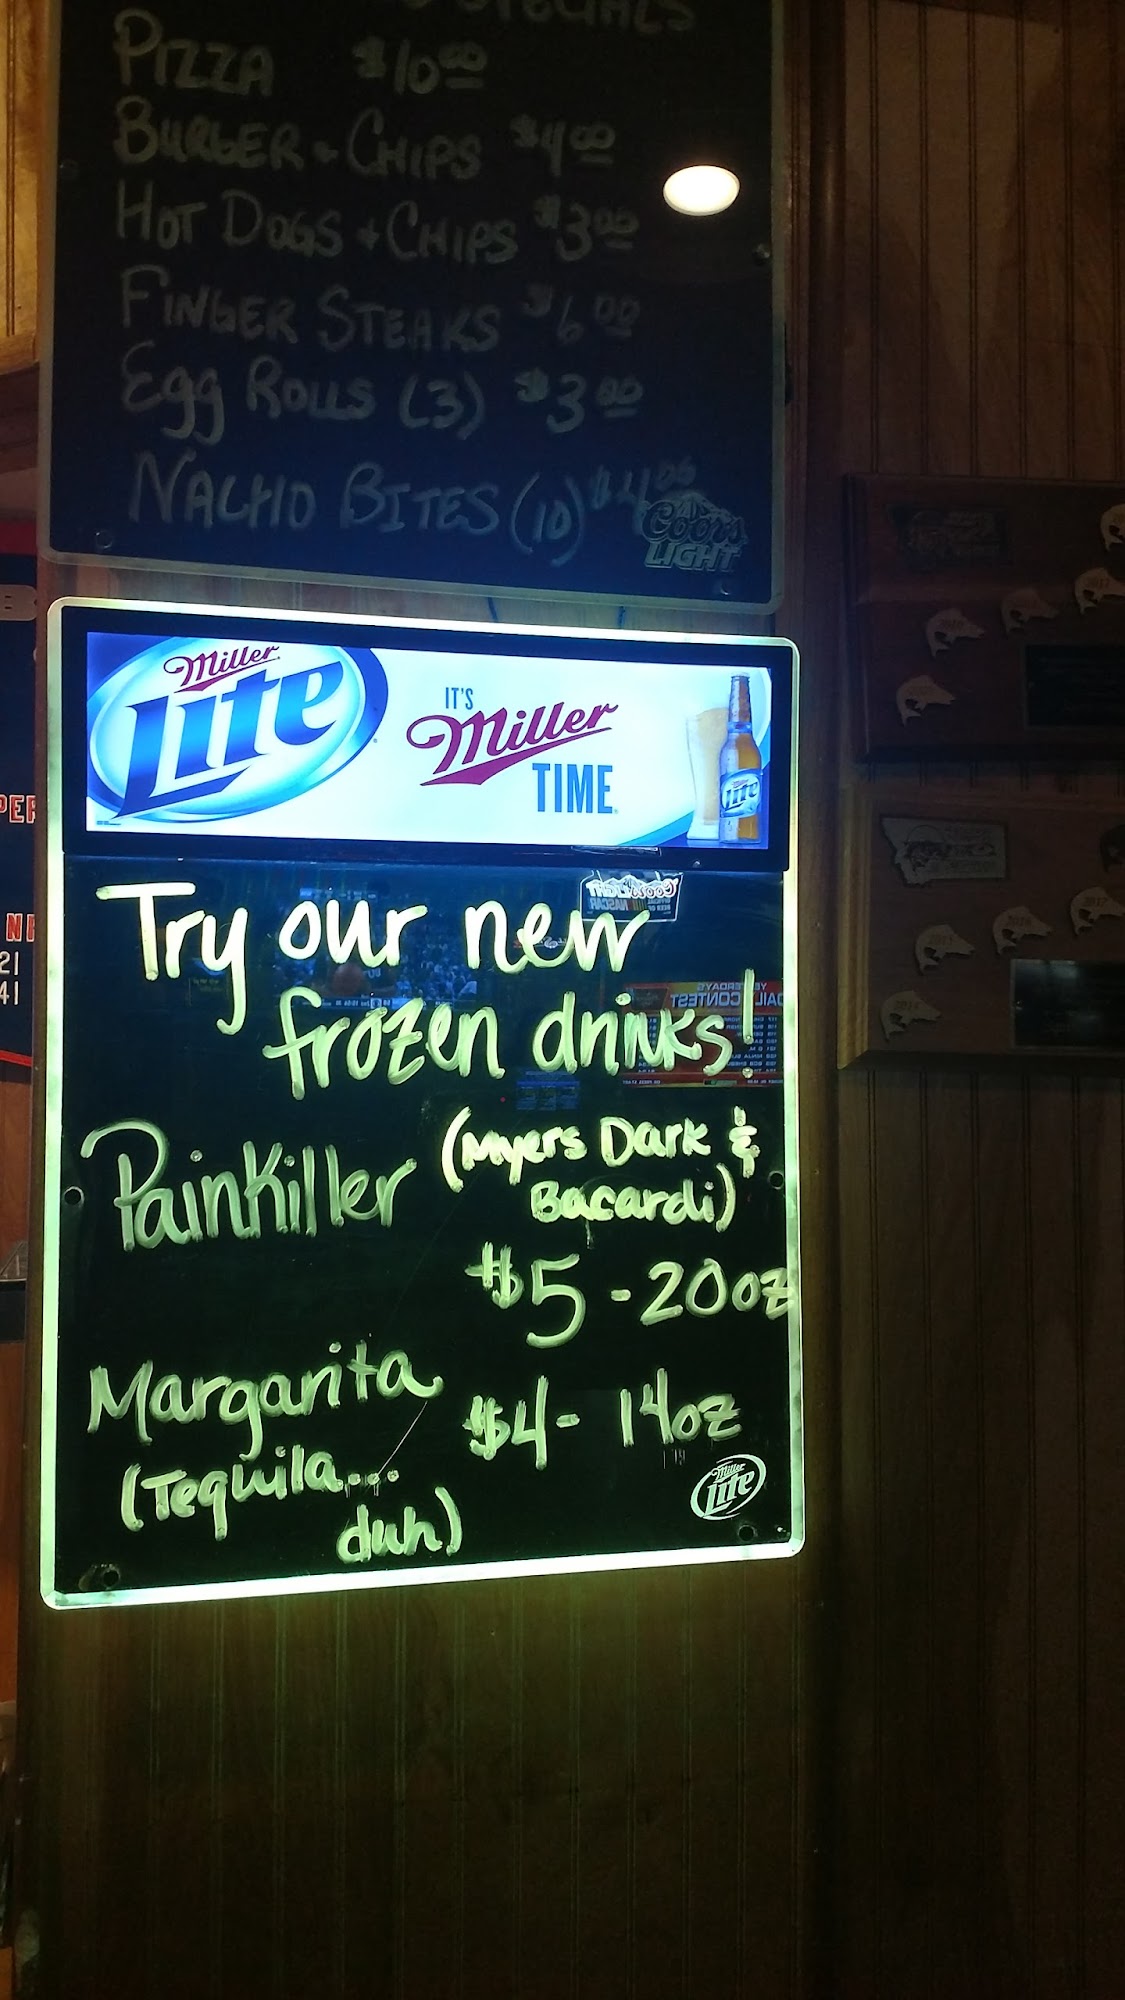 SPECIALS
PIZZA $10.00
BURGER + CHIPS $4.00
HOT DOGS + CHIPS $3.00
FINGER STEAKS $6.00
Egg ROLLS (3) $3.00
NACHO BITES (10) $4.00
Coors
LIGHT
Miller
Lite
IT'S
Miller
TIME
Lite
Try our new
frozen drinks!
Painkiller (Myers Dark &
Bacardi)
$5 - 20oz
Margarita $4 - 14oz
(Tequila...
duh)
Miller
Lite
21
41